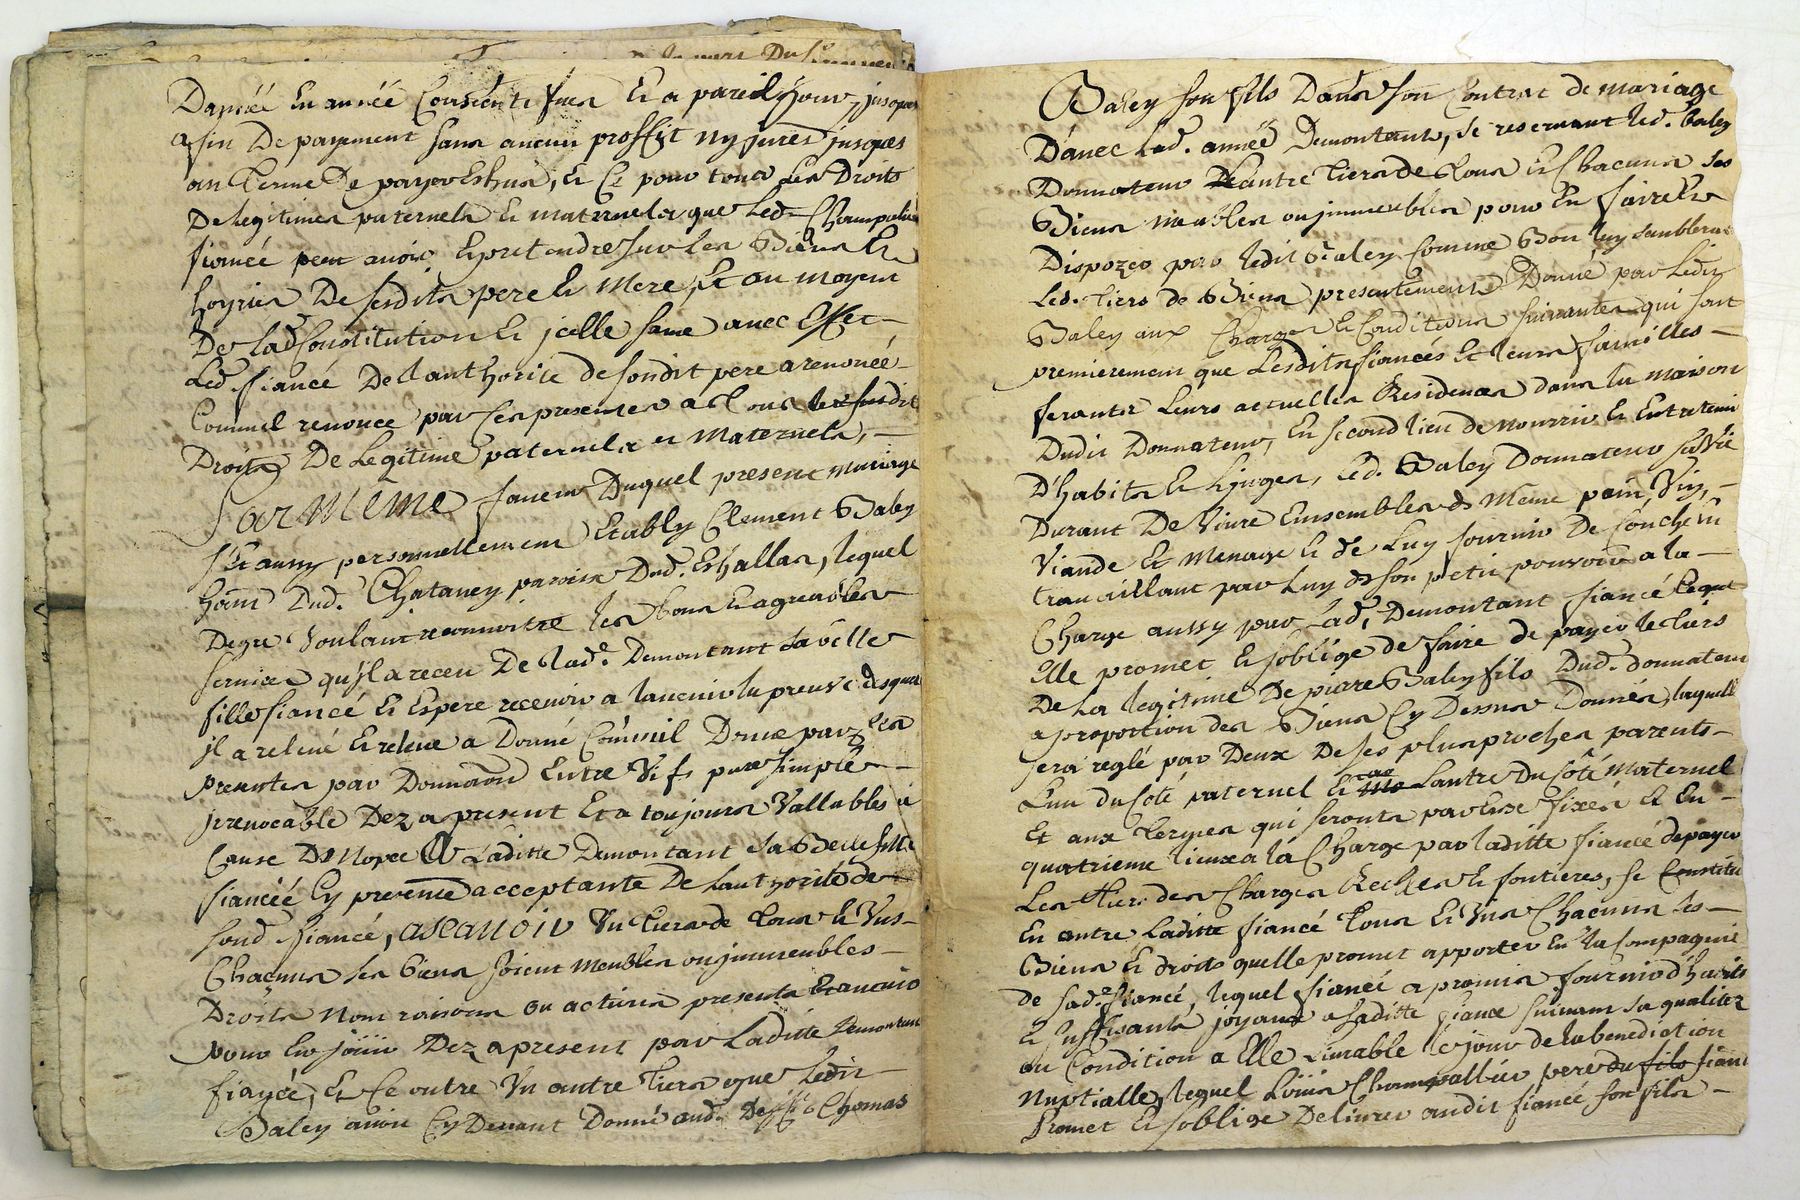 D'année en année Consecutifves Et a pareil jour, jusques
a fin De payement sans aucun proffit ny jnterets jusques
au Terme De payer Eshus, Et Ce pour tous Les Droits
De legitimes paternels Et maternels que Led. Champalier
fiancé peut avoir Et pretendre sur Les Biens Et
hoyries De sesdits pere Et Mere, Et au moyent
De lad. Constitution Et jcelle sans avec Effet
Led. fiancé De l'authorité de sondit pere a renoncé
Comme il renonce par Ces presentes a Tous les susdits
Droits De Legitime paternels et Maternels,
Par Même faveur Duquel present mariage
S'Est aussy personnellement Etably Clement Baley
hañt Dud. Chataney paroisse Dud. Eshallas, lequel
De gre Voulant reconnoitre les bons Et agreables
services qu'jl a receu De lad.e Demontant sa belle
fille fiancé Et Espere recevoir a l'avenir la preuve desquels
jl a relevé Et releve a Donné Comme il Donne par Ces
presentes par Donnaõn Entre Vifs pure simple
jrrevocable Dez a present Et a toujours Vallables a
Cause De Nopce A Laditte Demontant sa Belle fille
fiancée Cy presente acceptante De L'authorité de
sond. fiancé, ascavoir Un Tiers de Tous Et Uns
Chacuns ses biens soient meubles ou jmmeubles
Droits Noms raisons ou actions presents Et avenir
pour En joüir Dez a present par Laditte Demontant
fiancée, Et Ce outre Un autre Tiers que Ledit
Baley avoit Cy Devant Donné aud. Thomas
Baley son fils Dans son Contrat de mariage
D'avec Lad. année Demontant, se reservant Led. Baley
Donnateur L'autre Tiers de Tous Et Chacuns ses
Biens meubles ou jmmeubles pour En faire Et
Dispozer par Ledit Baley Comme Bon luy semblera
Led. Tiers de Biens presentement Donné par Ledit
Baley aux Charges Et Conditions suivantes qui sont
premierement que Lesdits fiancés Et leurs familles
feronts Leurs actuelles Residences dans la maison
Dudit Donnateur, En second lieu de nourrir Et Entretenir
D'habits Et Linges, Led. Baley Donnateur sa Vie
Durant De Vivre Ensembles du Même pain, Vin,
Viande Et Menage Et de Luy fournir De Couche En
travaillant par Luy de son petit pouvoir a la
Charge aussy pour Lad. Demontant fiancé Lequel
Elle promet Et s'oblige de faire de payer le tiers
De La legitime De pierre Baley fils Dud. donnateur
a proportion des Biens Cy Dessus Donnés, laquelle
sera reglé par Deux De ses plus proches parents
L'un du Côté paternel Et L'autre Du Côté Maternel
Et aux Termes qui seronts par Eux fixés Et En
quatrieme lieux a la Charge par laditte fiancé de payer
Les tiers des Charges Reelles Et fontieres, se Constitue
En outre Laditte fiancé Tous Et Uns Chacuns ses
Biens Et droits quelle promet apporter En la Compagnie
de sad.e fiancé, lequel fiancé a promis fournir d'habits
Et suffisants joyaux a saditte fiance suivant sa qualitez
ou Condition a Elle Livrable le jour de la benediction
Nuptialle, lequel Loüis Champallier pere du fils fiancé
Promet Et s'oblige Delivrer audit fiancé son fils